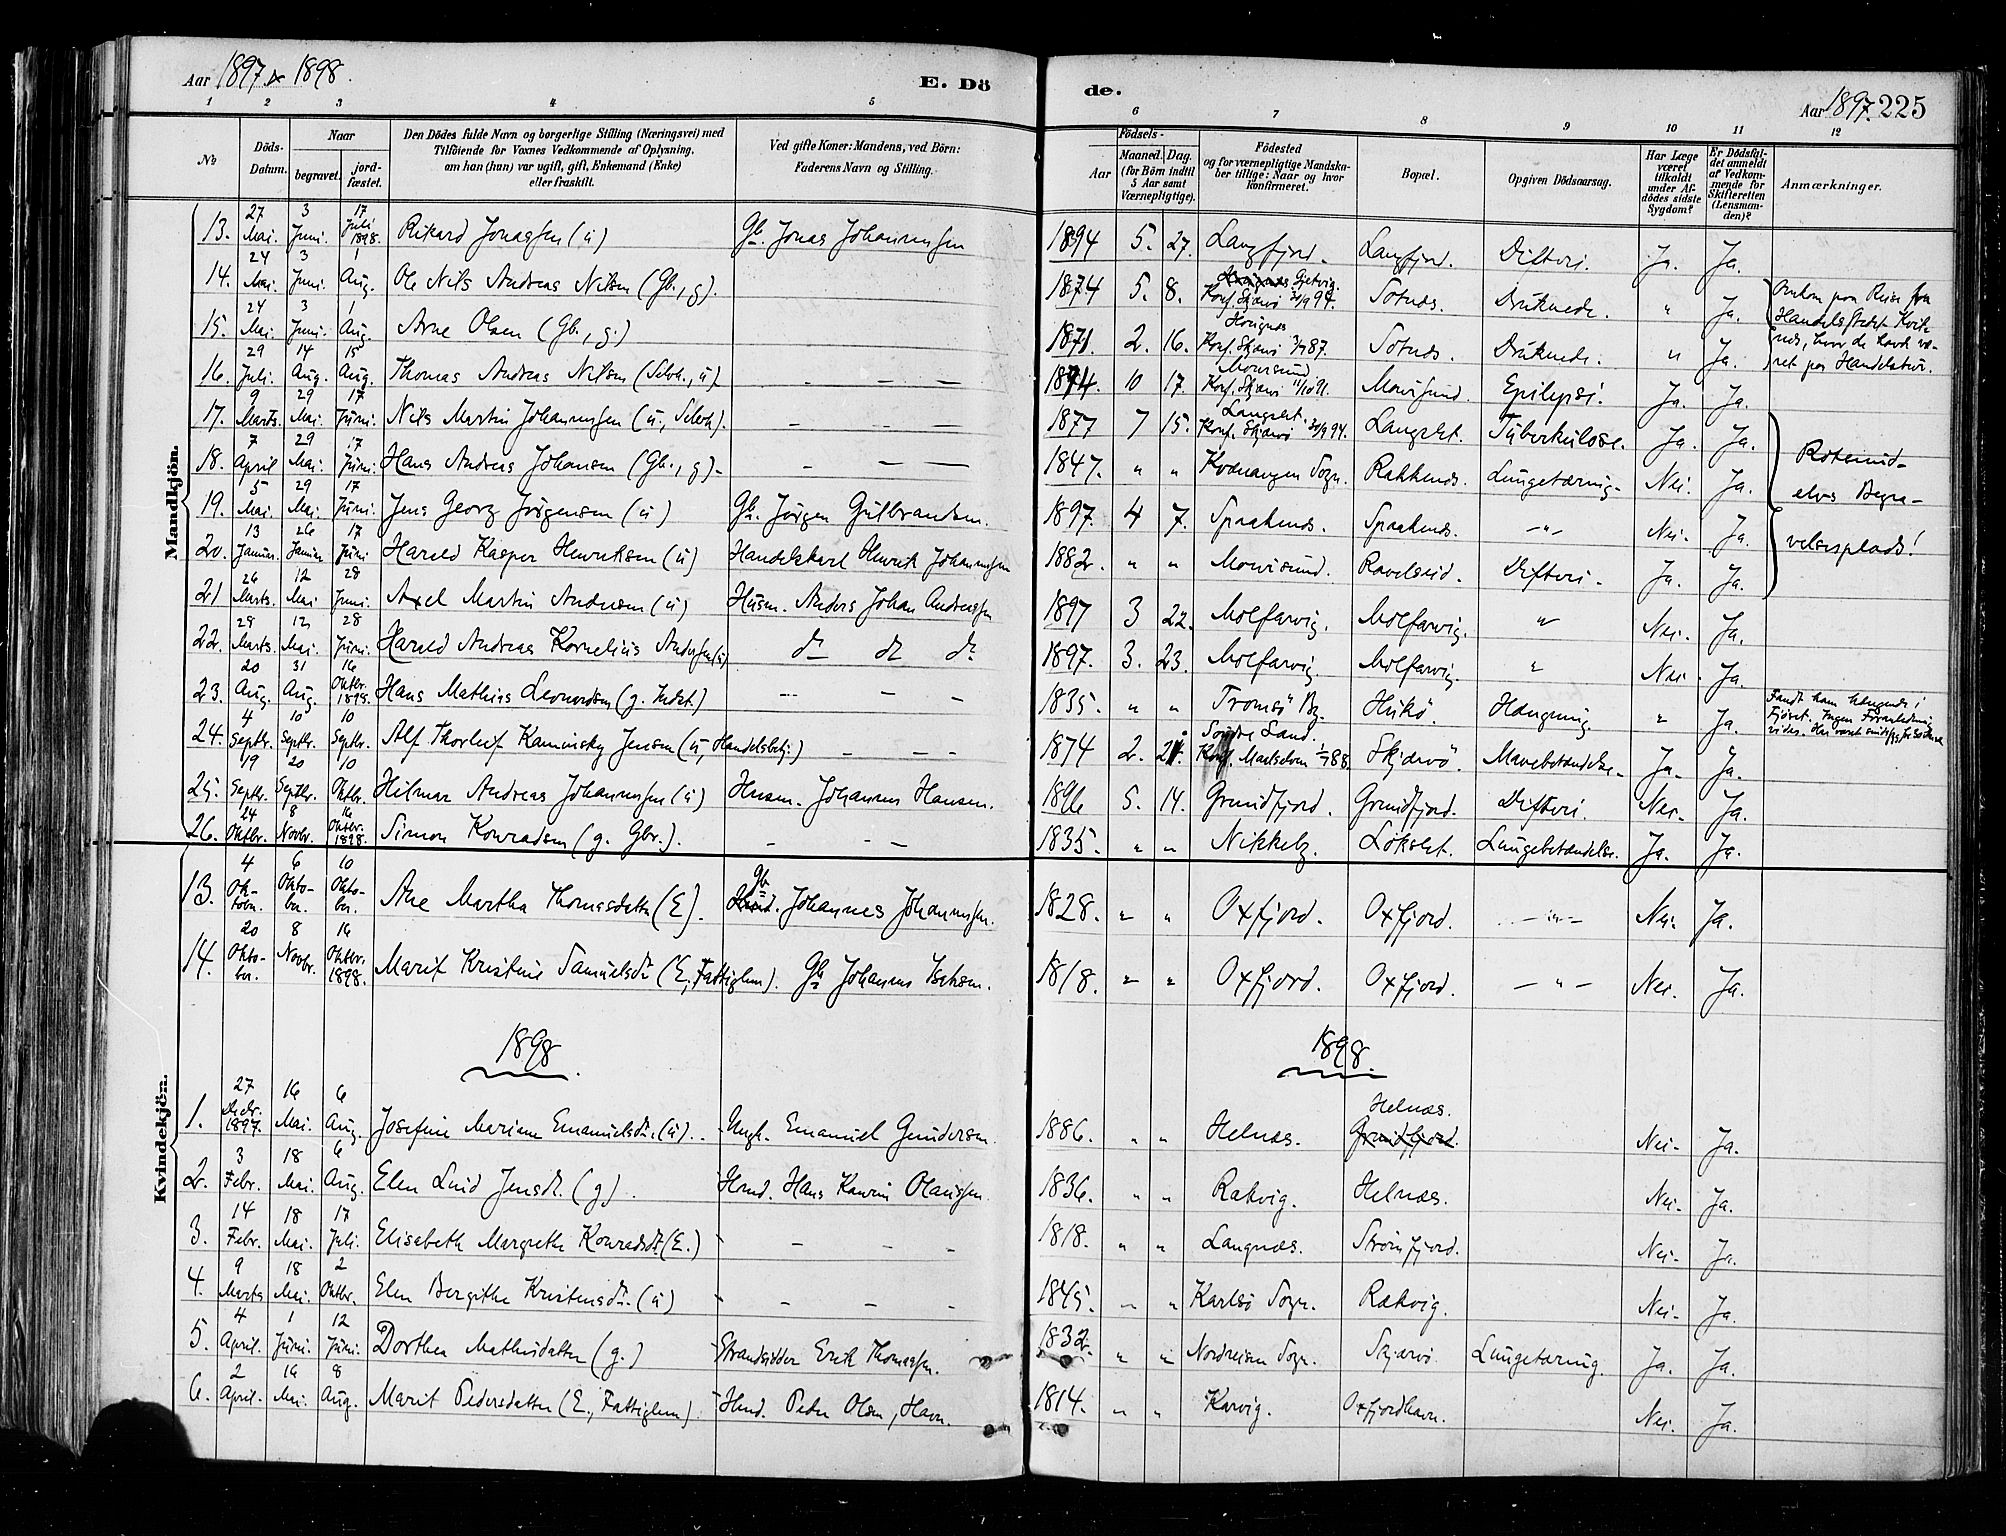 Aar 1897 & 1898.
E. Dö
de.
Aar 1897. 225
1 2 3 4 5 6 7 8 9 10 11 12
No
Döds-Datum.
Naar
begravet.
jord-fæstet.
Den Dödes fulde Navn og borgerlige Stilling (Næringsvei) med
Tilföiende for Voxnes Vedkommende af Oplysning,
om han (hun) var ugift, gift, Enkemand (Enke)
eller fraskilt.
Ved gifte Koner: Mandens, ved Börn:
Faderens Navn og Stilling.
Födsels-
Aar
Maaned. Dag.
(for Börn indtil
5 Aar samt
Værnepligtige).
Födested
og for værnepligtige Mandska-
ber tillige: Naar og hvor
konfirmeret.
Bopæl.
Opgiven Dödsaarsag.
Har Læge
været
tilkaldt
under Af-
dödes sidste
Sygdom?
Er Dödsfal-
det anmeldt
af Vedkom-
mende for
Skifteretten
(Lensman-
den)?
Anmærkninger.
Mandkjön.
13. 27 Mai. 3 Juni. 17 Juli 1898. Rikard Jonassen (u) Gb. Jonas Johannessen 1894 5. 27. Langfjord. Langfjord. Difteri. Ja. Ja.
14. 24 Mai. 3 Juni. 1 Aug. Ole Nils Andreas Nilsen (Gb., g). 1874 5. 8. Konf. Skjærvö 30/9 94. Sotnæs. Druknede. " Ja.
Omkom paa Reise fra
Handelsstedet Kvit-
næs, hvor de havde væ-
ret paa Handelstur.
15. 24 Mai. 3 Juni. 1 Aug. Arne Olsen (Gb., g.) 1871. 2. 16. Konf. Skjærvö 87. Sotnæs. Druknede. " Ja.
16. 29 Juli. 14 Aug. 15 Aug. Thomas Andreas Nilsen (Selvh., u) - - - 1874. 10 17. Maursund Konf. Skjærvö 91. Maursund. Epilepsi. Ja. Ja.
17. 9 Marts. 29 Mai. 17 Juni. Nils Martin Johannessen (u., Selvh). - - - 1877 7 15. Langslet. Konf. Skjærvö 30/9 94. Langslet. Tuberkulose. Ja. Ja.
18. 7 April 29 Mai. 17 Juni. Hans Andreas Johansen (Gb., g) - - - 1847. " " Kvænangen Sogn. Rakkenæs. Lungetæring. Nei. Ja.
Rotsund-
elvs Begra-
velsesplads!
19. 5 Mai. 29 Mai. 17 Juni. Jens Georg Jörgensen (u) Gb. Jörgen Gulbrandsen. 1897. 4 7. Spaakenæs. Spaakenæs. -"- Nei. Ja.
20. 13 Januar. 26 Januar 17 Juni Harald Kasper Henriksen (u) Handelskarl Henrik Johannessen 1882. " " Maursund. Ravelseid. Difteri. Ja. Ja.
21 26 Marts. 12 Mai 28 Juni. Axel Martin Andersen (u) Husm. Anders Johan Andreassen 1897 3 22. Molfarvig. Molfarvig. " Nei. Ja.
22. 29 Marts. 12 Mai. 28 Juni. Harald Andreas Kornelius Andersen (u) do do do 1897. 3. 23. Molfarvig. Molfarvig. " Nei. Ja.
23. 20 Aug. 31 Aug. 16 Oktbr. 1898. Hans Mathias Leonardsen (g. Indst.) - - - 1835. " " Tromsö By. Hukö. Hængning. " Ja.
Fandt ham hængende i
Fjöset. Ingen Foranledning
vides.
24. 4 Septbr. 10 Septbr. 10 Septbr. Alf Thorleif Kaminsky Jensen (u, Handelsbetj.) - - - 1874 2. 21. Söndre Land. Konf. 88. Skjærvö. Mavebetændelse. Ja. Ja.
25. 19 Septbr. 20 Septbr. 10 Oktbr. Hilmar Andreas Johannessen (u) Husm. Johannes Hansen. 1896 5. 14. Grundfjord. Grundfjord. Difteri. Nei. Ja.
26. 24 Oktbr. 8 Novbr. 16 Oktbr. 1898. Simon Konradsen (g. Gbr.). - - - 1835. " " Nikkelg. Lökslet. Lungebetændelse. Ja. Ja.
Kvindekjön.
13. 4 Oktober. 6 Oktober. 10 Oktober. Ane Martha Thomasdatter (E). Gb Johannes Johannessen. 1828. " " Oxfjord. Oxfjord. -"- Nei. Ja.
14. 20 Oktober. 8 Novbr. 16 Oktbr. 1898. Marit Kristine Samuelsdt. (E., Fattiglem). Gb Johannes Isaksen. 1818. " " Oxfjord. Oxfjord. -"- Nei. Ja.
1898 1898
1. 27 Decbr. 1897. 16 Mai. 6 Aug. Josefine Mariane Emanuelsdt. (u). Ungk. Emanuel Gundersen. 1886. " " Helnæs. Helnæs. Grundfjord. Nei. Ja.
2. 3 Febr. 18 Mai. 6 Aug. Elen Lucid Jensdt. (g). Hmd. Hans Kaurin Olaussen. 1836. " " Rakvig. Helnæs. Nei. Ja.
3. 14 Febr. 18 Mai. 17 Juli. Elisabeth Margrethe Konradsdt. (E.) - - - 1818. " " Langnæs. Strömfjord. Nei. Ja.
4. 9 Marts 18 Mai. 2 Oktbr. Elen Bergithe Kristensdt. (u) - - - 1845. " " Karlsö Sogn. Rækvig. Nei. Ja.
5. 4 April. 1 Juni. 12 Juni. Dorthea Mathisdatter (g.) Strandsidder Erik Thomassen. 1832. " " Nordreisen Sogn. Skjærvö Lungetæring. Ja. Ja.
6. 2 April. 16 Mai. 8 Aug. Marit Pedersdatter (E., Fattiglem) Hmd. Peder Olsen, Havn. 1814. " " Karvig. Oxfjordhavn. Nei. Ja.